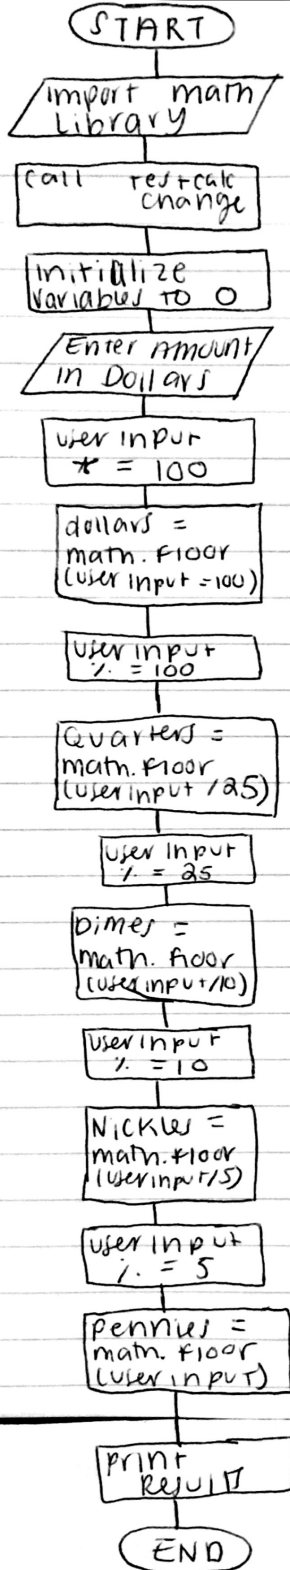 START
import math
Library
call test calc
change
initialize
variables to 0
Enter Amount
in Dollars
user input
* = 100
dollars =
math. floor
(user input = 100)
user input
% = 100
Quarters =
math. floor
(user input / 25)
user input
% = 25
Dimes =
math. floor
(user input/10)
user input
% = 10
Nickles =
math. floor
(user input/5)
user input
% = 5
pennies =
math. floor
(user input)
print
Result
END